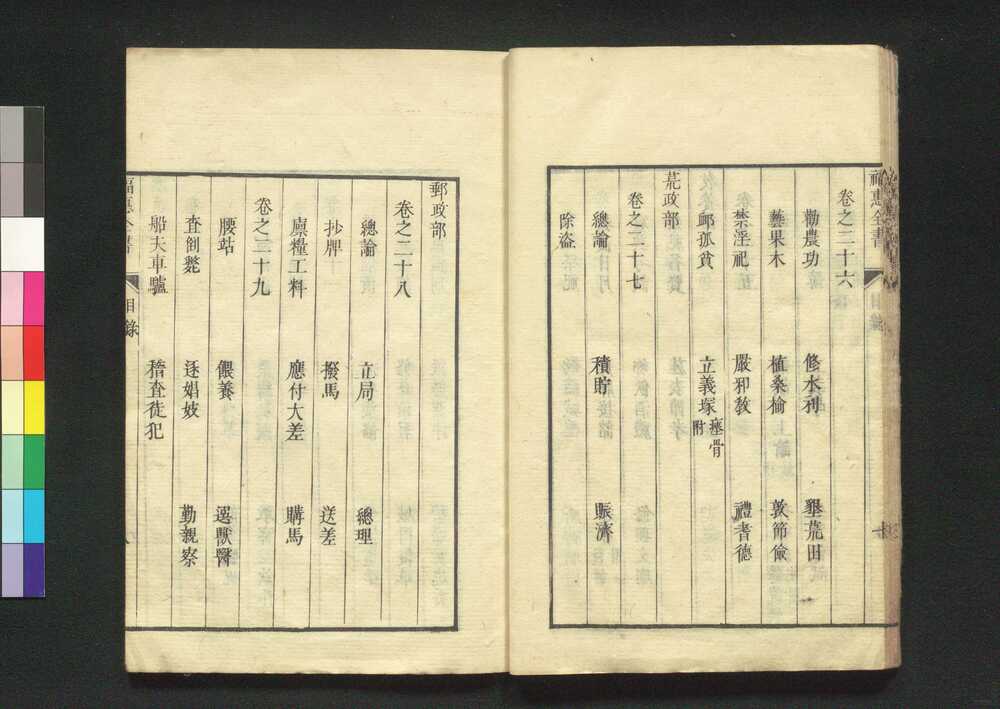 福惠全書 目錄
卷之二十六
勸農功 修水利 墾荒田
藝果木 植桑榆 敦節儉
禁淫祀 嚴邪教 禮耆德
卹孤貧 立義塚 瘞骨附
荒政部
卷之二十七
總論 積貯 賑濟
除盜
郵政部
卷之二十八
總論 立局 總理
抄牌 撥馬 送差
廩糧工料 應付大差 購馬
卷之二十九
腰站 餵養 選獸醫
查倒斃 逐娼妓 勤親察
船夫車驢 稽查徒犯
福惠全書 目錄